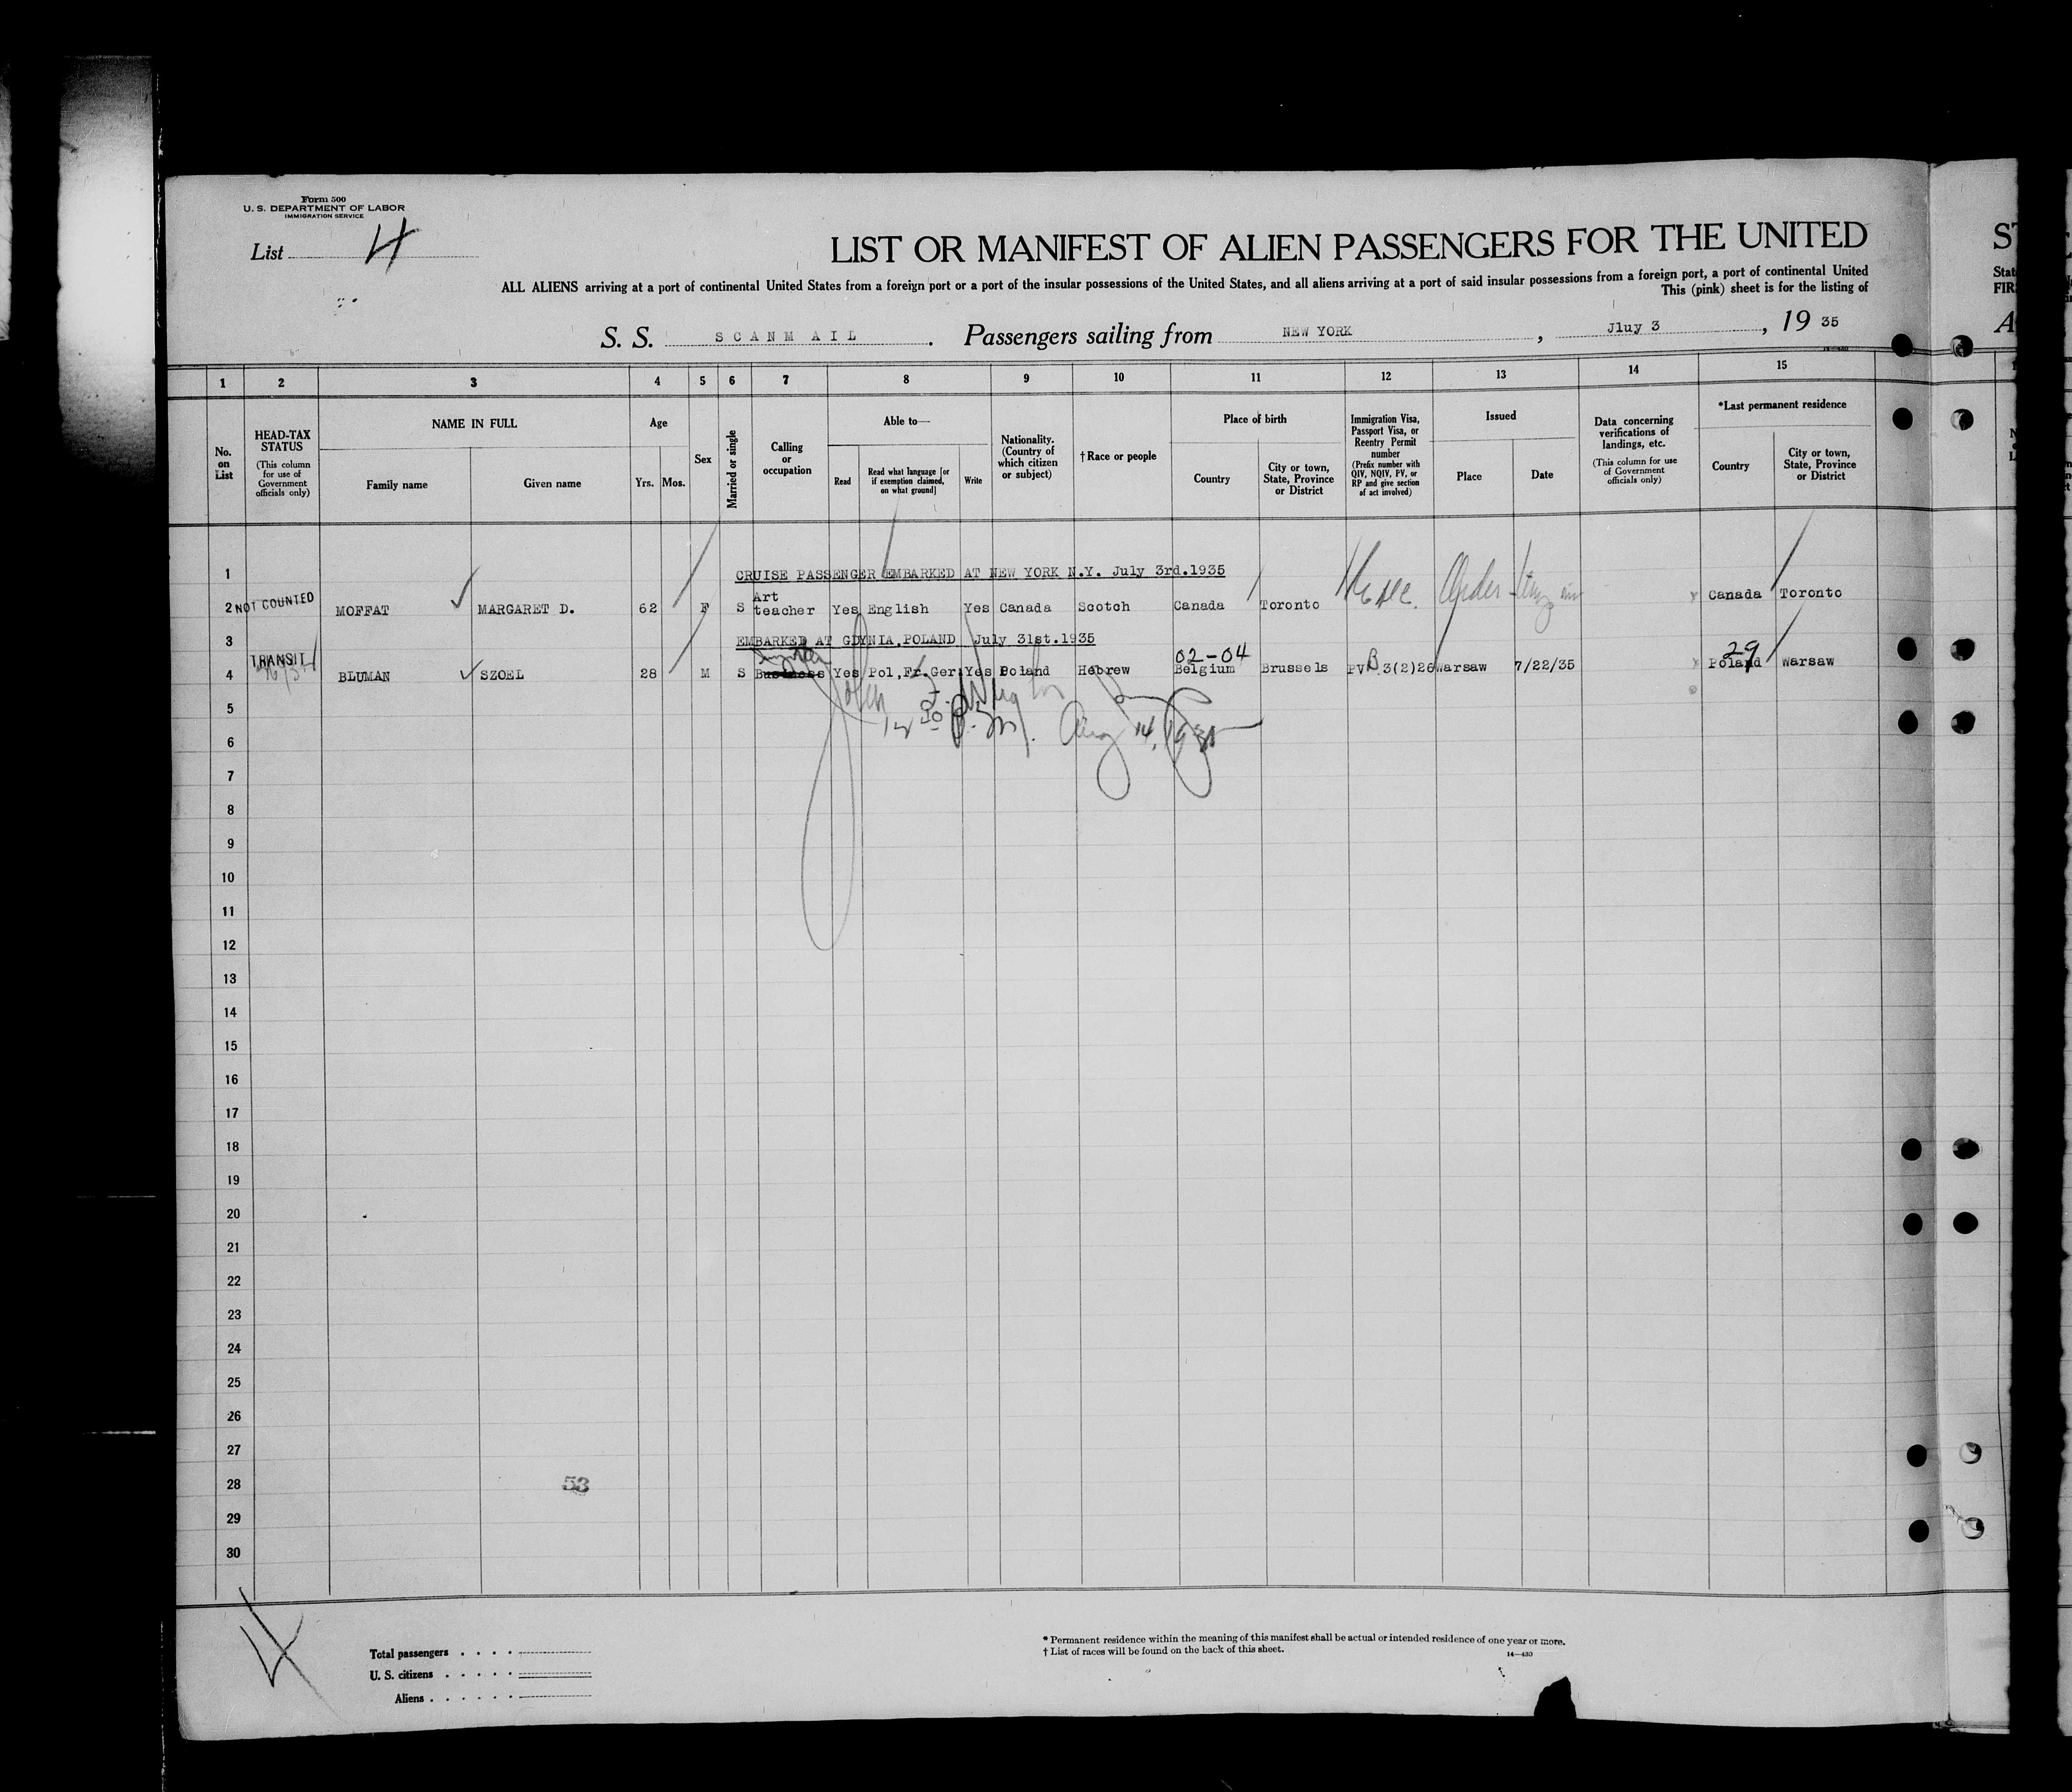 Form 500
U. S. DEPARTMENT OF LABOR
IMMIGRATION SERVICE
List 4
LIST OR MANIFEST OF ALIEN PASSENGERS FOR THE UNITED
ALL ALIENS arriving at a port of continental United States from a foreign port or a port of the insular possessions of the United States, and all aliens arriving at a port of said insular possessions from a foreign port, a port of continental United
This (pink) sheet is for the listing of
S. S. SCANMAIL. Passengers sailing from NEW YORK, Jluy 3, 19 35
1 2 3 4 5 6 7 8 9 10 11 12 13 14 15
No. on List
HEAD-TAX STATUS (This column for use of Government officials only)
NAME IN FULL
Family name
Given name
Age
Yrs. Mos.
Sex
Married or single
Calling or occupation
Able to—
Read
Read what language [or if exemption claimed, on what ground]
Write
Nationality. (Country of which citizen or subject)
†Race or people
Place of birth
Country
City or town, State, Province or District
Immigration Visa, Passport Visa, or Reentry Permit number (Prefix number with QIV, NQIV, PV, or RP and give section of act involved)
Issued
Place
Date
Data concerning verifications of landings, etc. (This column for use of Government officials only)
*Last permanent residence
Country
City or town, State, Province or District
1 CRUISE PASSENGER EMBARKED AT NEW YORK N.Y. July 3rd.1935
2 NOT COUNTED MOFFAT MARGARET D. 62 F S Art teacher Yes English Yes Canada Scotch Canada Toronto Order Canada Toronto
3 EMBARKED AT GDYNIA,POLAND July 31st.1935
02-04 29
4 TRANSIT BLUMAN SZOEL 28 M S Business Yes Pol,Fr.Ger. Yes Poland Hebrew Belgium Brussels PV 3(2)26 Warsaw 7/22/35 Poland Warsaw
John
5
Aug 14,
6
7
8
9
10
11
12
13
14
15
16
17
18
19
20
21
22
23
24
25
26
27
28 53
29
30
4
Total passengers
U. S. citizens
Aliens
* Permanent residence within the meaning of this manifest shall be actual or intended residence of one year or more.
† List of races will be found on the back of this sheet.
14—430